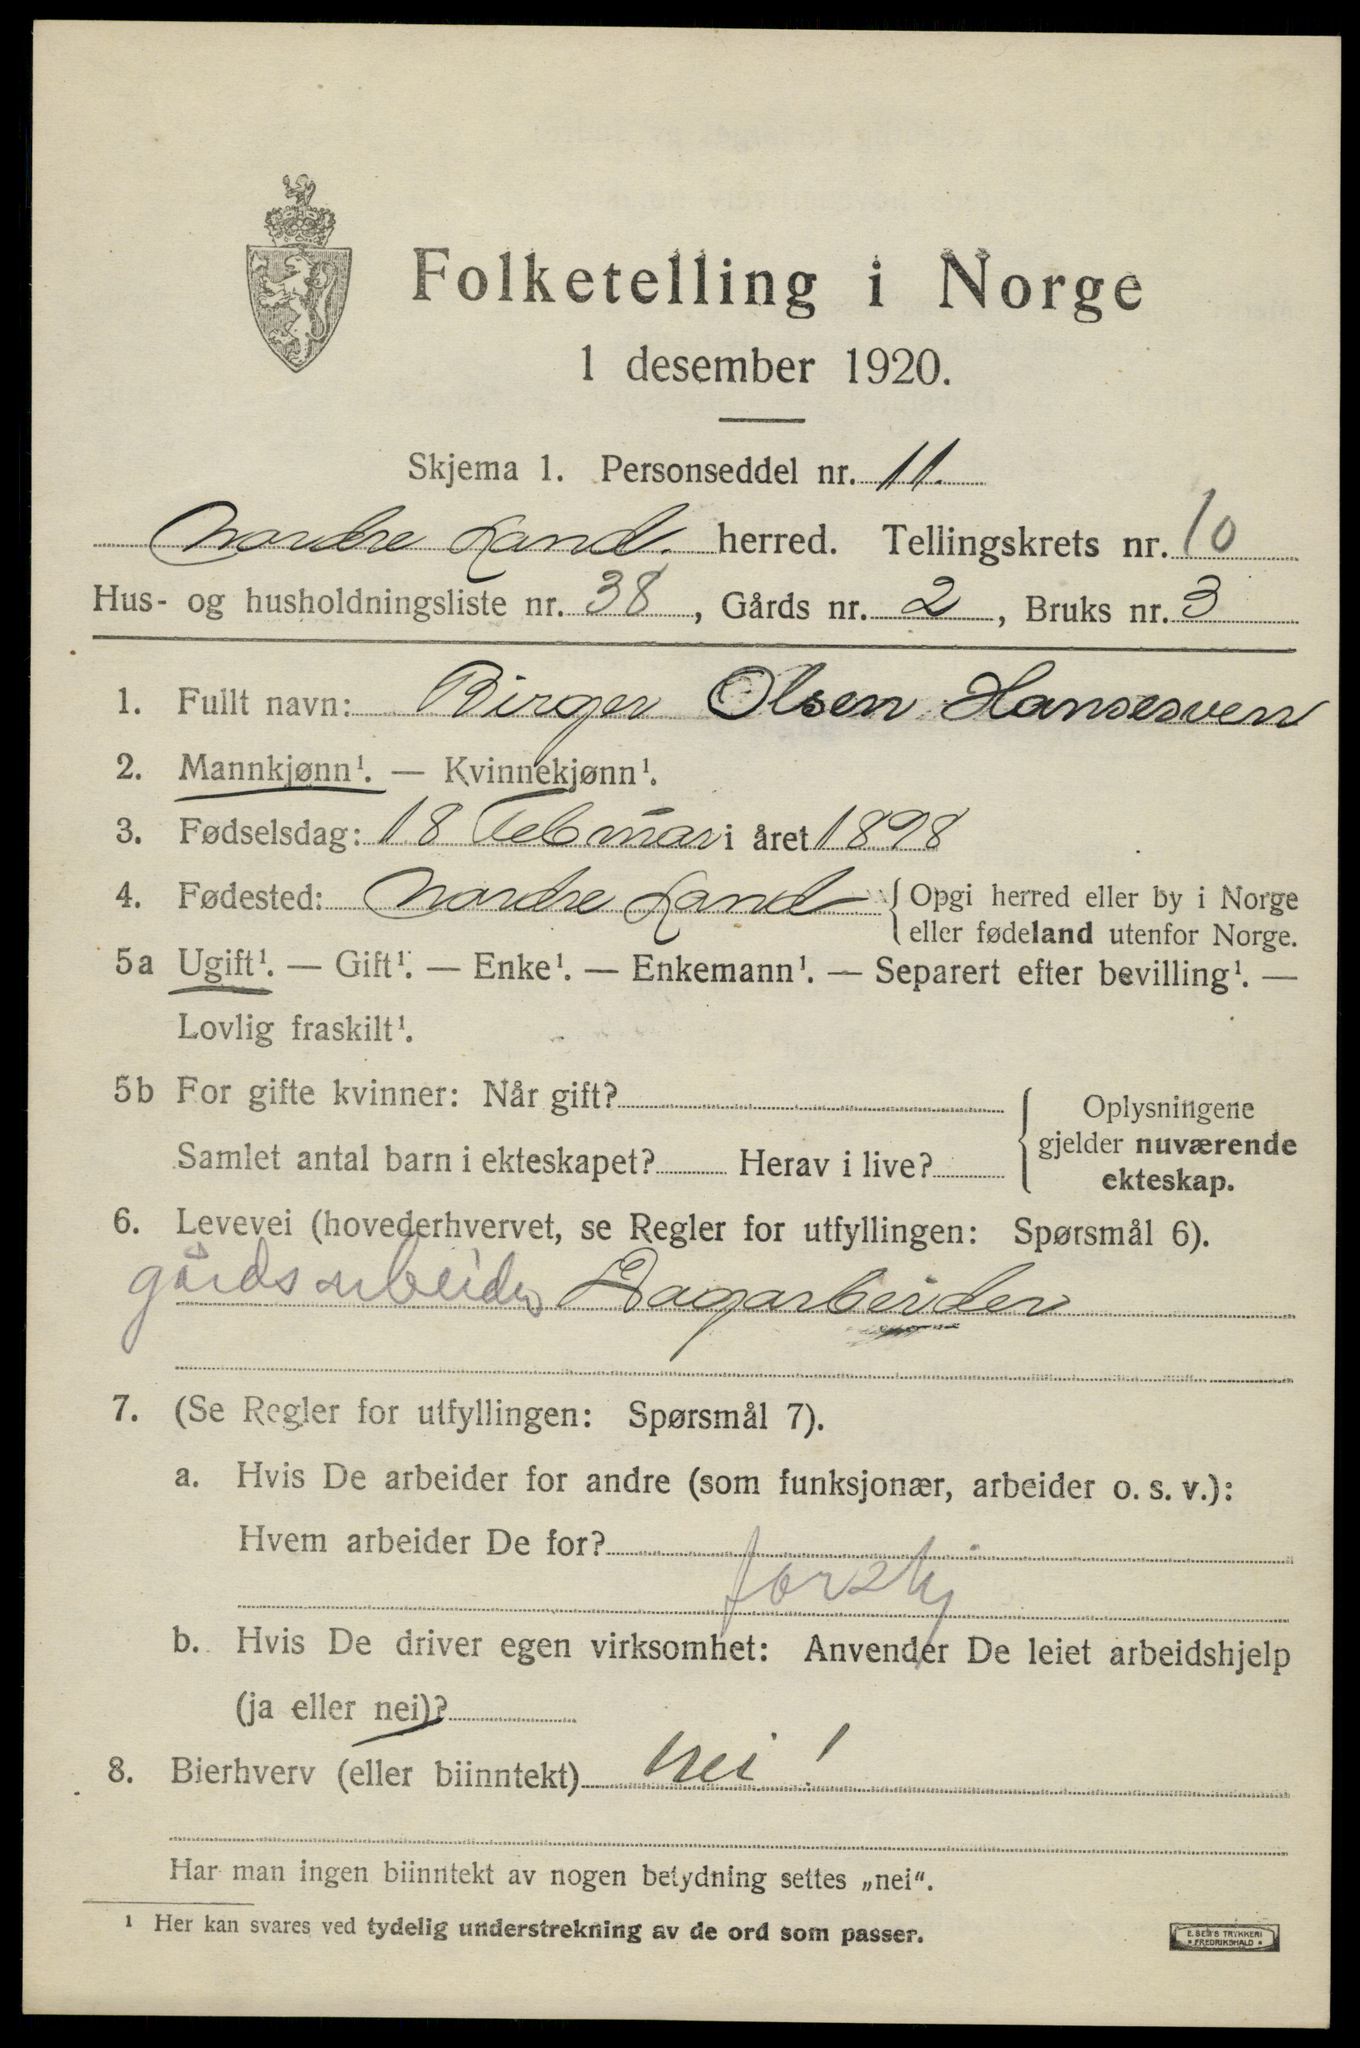 Folketelling i Norge
1 desember 1920.
Skjema 1. Personseddel nr. 11.
Nordre Land. herred. Tellingskrets nr. 10
Hus- og husholdningsliste nr. 38, Gårds nr. 2, Bruks nr. 3
1. Fullt navn: Birger Olsen Hansesven
2. Mannkjønn¹. — Kvinnekjønn¹.
3. Fødselsdag: 18 Februar i året 1898
4. Fødested: Nordre Land { Opgi herred eller by i Norge
eller fødeland utenfor Norge.
5a Ugift¹. — Gift¹. — Enke¹. — Enkemann¹. — Separert efter bevilling¹. —
Lovlig fraskilt¹.
5b For gifte kvinner: Når gift?
Samlet antal barn i ekteskapet? Herav i live?
{ Oplysningene
gjelder nuværende
ekteskap.
6. Levevei (hovederhvervet, se Regler for utfyllingen: Spørsmål 6).
gårdsarbeider Dagarbeider
7. (Se Regler for utfyllingen: Spørsmål 7).
a. Hvis De arbeider for andre (som funksjonær, arbeider o. s. v.):
Hvem arbeider De for?
forskj
b. Hvis De driver egen virksomhet: Anvender De leiet arbeidshjelp
(ja eller nei)?
8. Bierhverv (eller biinntekt) nei!
Har man ingen biinntekt av nogen betydning settes „nei“.
¹ Her kan svares ved tydelig understrekning av de ord som passer.
E. SEM'S TRYKKERI
* FREDRIKSHALD *